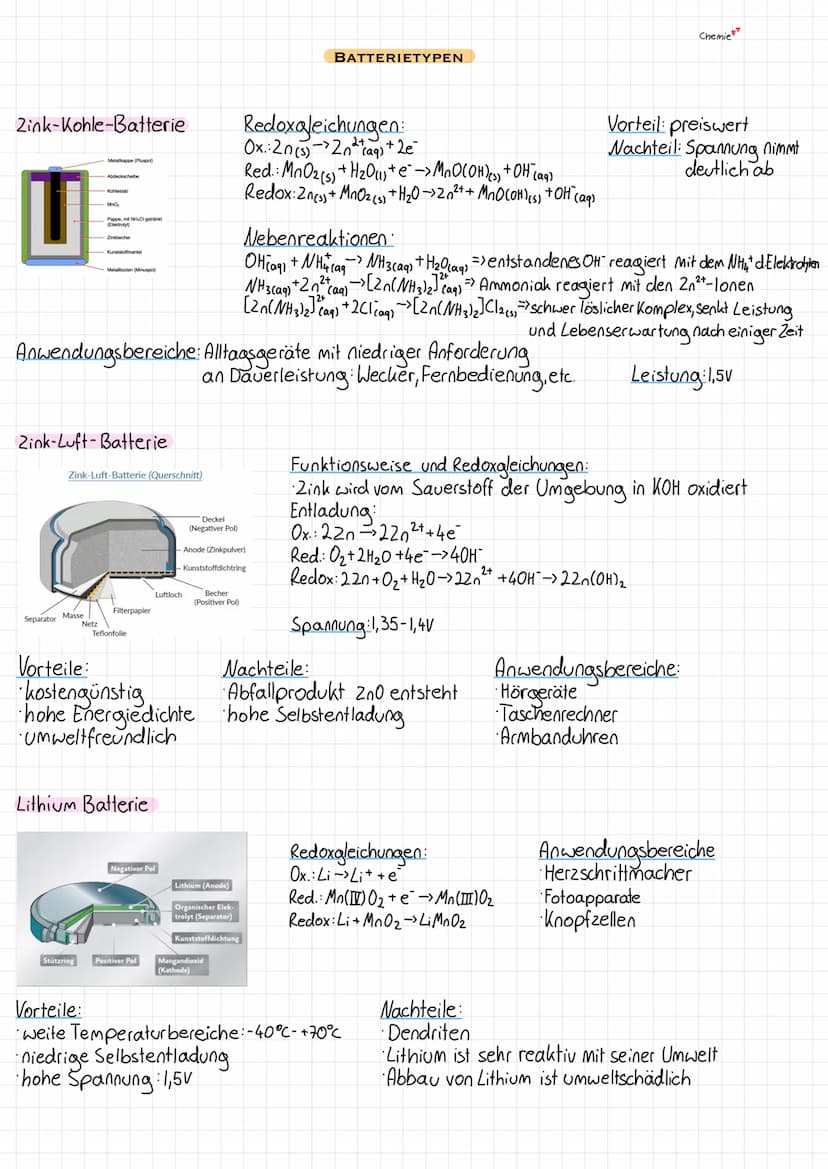 Chemie
BATTERIETYPEN
Zink-Kohle-Batterie
Metallkappe (Pluspol)
Abdeckscheibe
Kohlestab
MnO₂
Pappe, mit NH₄Cl getränkt
(Elektrolyt)
Zinkbecher
Kunststoffmantel
Metallboden (Minuspol)
Redoxgleichungen:
Ox.: Zn(s) → Zn²⁺(aq) + 2e⁻
Red.: MnO₂(s) + H₂O(l) + e⁻ → MnO(OH)(s) + OH⁻(aq)
Redox: Zn(s) + MnO₂(s) + H₂O → Zn²⁺ + MnO(OH)(s) + OH⁻(aq)
Vorteil: preiswert
Nachteil: Spannung nimmt
deutlich ab
Nebenreaktionen:
OH⁻(aq) + NH₄⁺(aq → NH₃(aq) + H₂O(aq) => entstandenes OH⁻ reagiert mit dem NH₄⁺ d. Elektrolyten
NH₃(aq) + Zn²⁺(aq) → [Zn(NH₃)₂]²⁺(aq) => Ammoniak reagiert mit den Zn²⁺-Ionen
[Zn(NH₃)₂]²⁺(aq) + 2Cl⁻(aq) → [Zn(NH₃)₂]Cl₂(s) => schwer löslicher Komplex, senkt Leistung
und Lebenserwartung nach einiger Zeit
Anwendungsbereiche: Alltagsgeräte mit niedriger Anforderung
an Dauerleistung: Wecker, Fernbedienung, etc.
Leistung: 1,5V
Zink-Luft-Batterie
Zink-Luft-Batterie (Querschnitt)
Deckel
(Negativer Pol)
Anode (Zinkpulver)
Kunststoffdichtring
Becher
(Positiver Pol)
Luftloch
Filterpapier
Teflonfolie
Netz
Masse
Separator
Funktionsweise und Redoxgleichungen:
·Zink wird vom Sauerstoff der Umgebung in KOH oxidiert
Entladung:
Ox.: 2Zn → 2Zn²⁺ + 4e⁻
Red.: O₂ + 2H₂O + 4e⁻ → 4OH⁻
Redox: 2Zn + O₂ + H₂O → 2Zn²⁺ + 4OH⁻ → 2Zn(OH)₂
Spannung: 1,35-1,4V
Vorteile:
·kostengünstig
·hohe Energiedichte
·umweltfreundlich
Nachteile:
·Abfallprodukt ZnO entsteht
·hohe Selbstentladung
Anwendungsbereiche:
·Hörgeräte
·Taschenrechner
·Armbanduhren
Lithium Batterie
Negativer Pol
Lithium (Anode)
Organischer Elek-
trolyt (Separator)
Kunststoffdichtung
Stützring
Positiver Pol
Mangandioxid
(Kathode)
Redoxgleichungen:
Ox.: Li → Li⁺ + e⁻
Red.: Mn(IV)O₂ + e⁻ → Mn(III)O₂
Redox: Li + MnO₂ → LiMnO₂
Anwendungsbereiche
·Herzschrittmacher
·Fotoapparate
·Knopfzellen
Vorteile:
·weite Temperaturbereiche: -40°C - +70°C
·niedrige Selbstentladung
·hohe Spannung: 1,5V
Nachteile:
·Dendriten
·Lithium ist sehr reaktiv mit seiner Umwelt
·Abbau von Lithium ist umweltschädlich